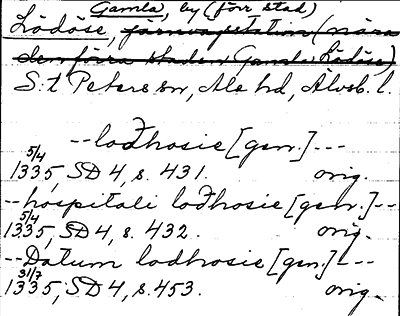 Gamla, by (förr stad)
Lödöse, järnvägsstation (nära
den förra staden Gamla Lödöse)
S:t Peters sn, Ale hd, Älvsb. l.
--lođhosie [gen.]---
5/4
1335, SD 4, s. 431. orig.
--hospitali lođhosie [gen.]--
5/4
1335, SD 4, s. 432. orig.
--Datum lodhosie [gen.]---
31/7
1335, SD 4, s. 453. orig.